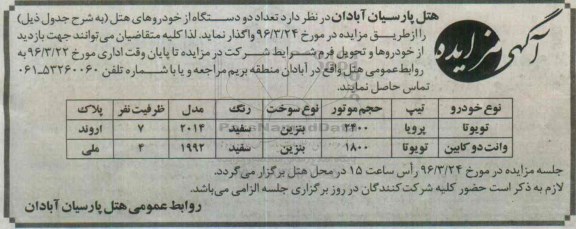 آگهی مزایده
هتل پارسیان آبادان در نظر دارد تعداد دو دستگاه از خودروهای هتل (به شرح جدول ذیل)
را از طریق مزایده در مورخ ۹۶/۳/۲۴ واگذار نماید. لذا کلیه متقاضیان می‌توانند جهت بازدید
از خودروها و تحویل فرم شرایط شرکت در مزایده تا پایان وقت اداری مورخ ۹۶/۳/۲۲ به
روابط عمومی هتل واقع در آبادان منطقه بریم مراجعه و یا با شماره تلفن ۵۳۲۶۰۰۶۰-۰۶۱
تماس حاصل نمایند.
نوع خودرو تیپ حجم موتور نوع سوخت رنگ مدل ظرفیت نفر پلاک
تویوتا پرویا ۲۴۰۰ بنزین سفید ۲۰۱۴ ۷ اروند
وانت دو کابین تویوتا ۱۸۰۰ بنزین سفید ۱۹۹۲ ۴ ملی
جلسه مزایده در مورخ ۹۶/۳/۲۴ رأس ساعت ۱۵ در محل هتل برگزار می‌گردد.
لازم به ذکر است حضور کلیه شرکت‌کنندگان در روز برگزاری جلسه الزامی می‌باشد.
روابط عمومی هتل پارسیان آبادان